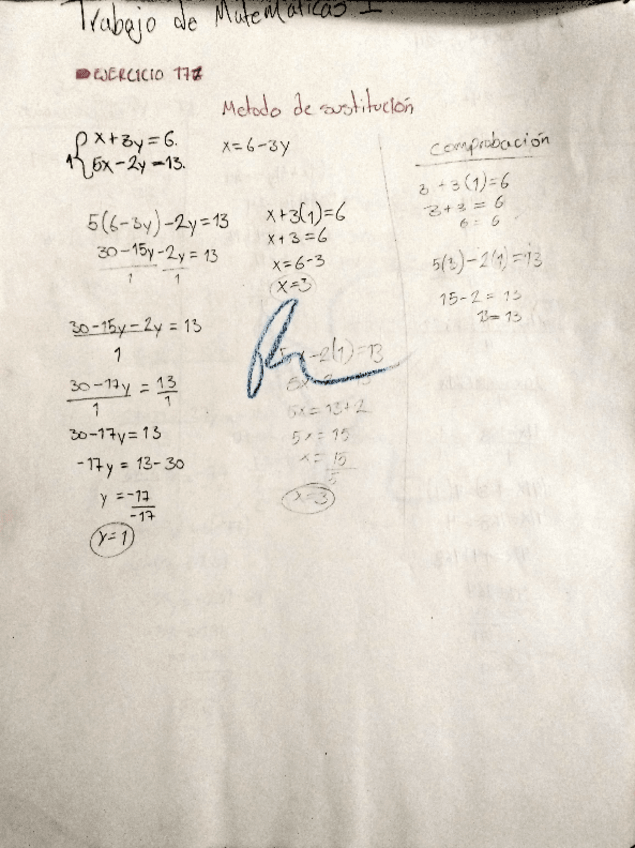 Trabajo de Matemáticas I
EJERCICIO 177
Metodo de sustitución
x+3y=6.
1 5x-2y=13.
x=6-3y
5(6-3y)-2y=13
30-15y-2y=13
1 1
30-15y-2y=13
1
30-17y = 13
1 1
30-17y=13
-17y=13-30
y=-17
-17
y=1
x+3(1)=6
x+3=6
x=6-3
x=3
x-2(1)=13
5x=13+2
5x=15
x=15
5
x=3
Comprobación
3+3(1)=6
3+3=6
6=6
5(3)-2(1)=13
15-2=13
13=13